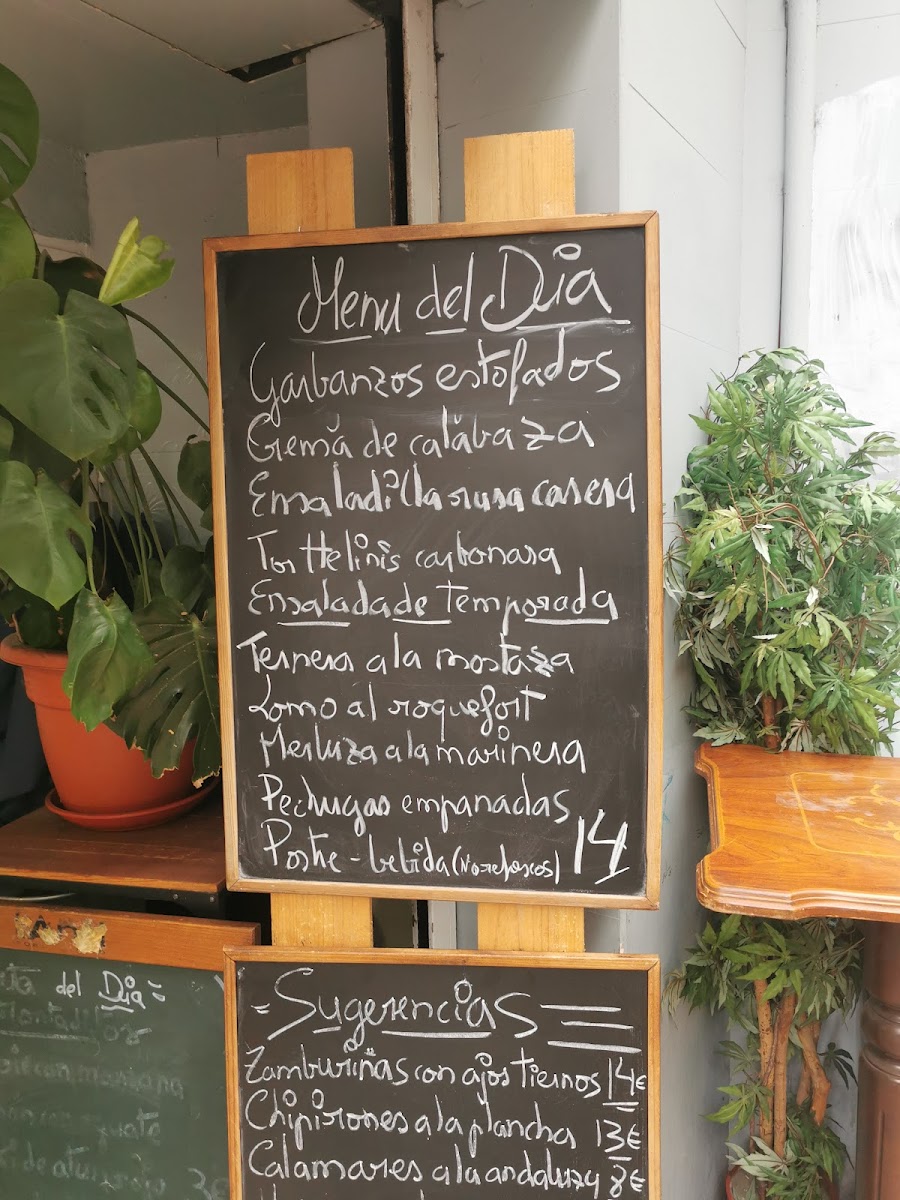 Menu del Dia
Garbanzos estofados
Crema de calabaza
Ensaladilla rusa casera
Torttelinis carbonara
Ensalada de temporada
Ternera a la mostaza
Lomo al roquefort
Merluza a la marinera
Pechugas empanadas
Postre - bebida (No refrescos) 14
= Sugerencias
Zamburiñas con ajos tiernos 14€
Chipirones a la plancha 13€
Calamares a la andaluza 8€
del Dia =
de 3€